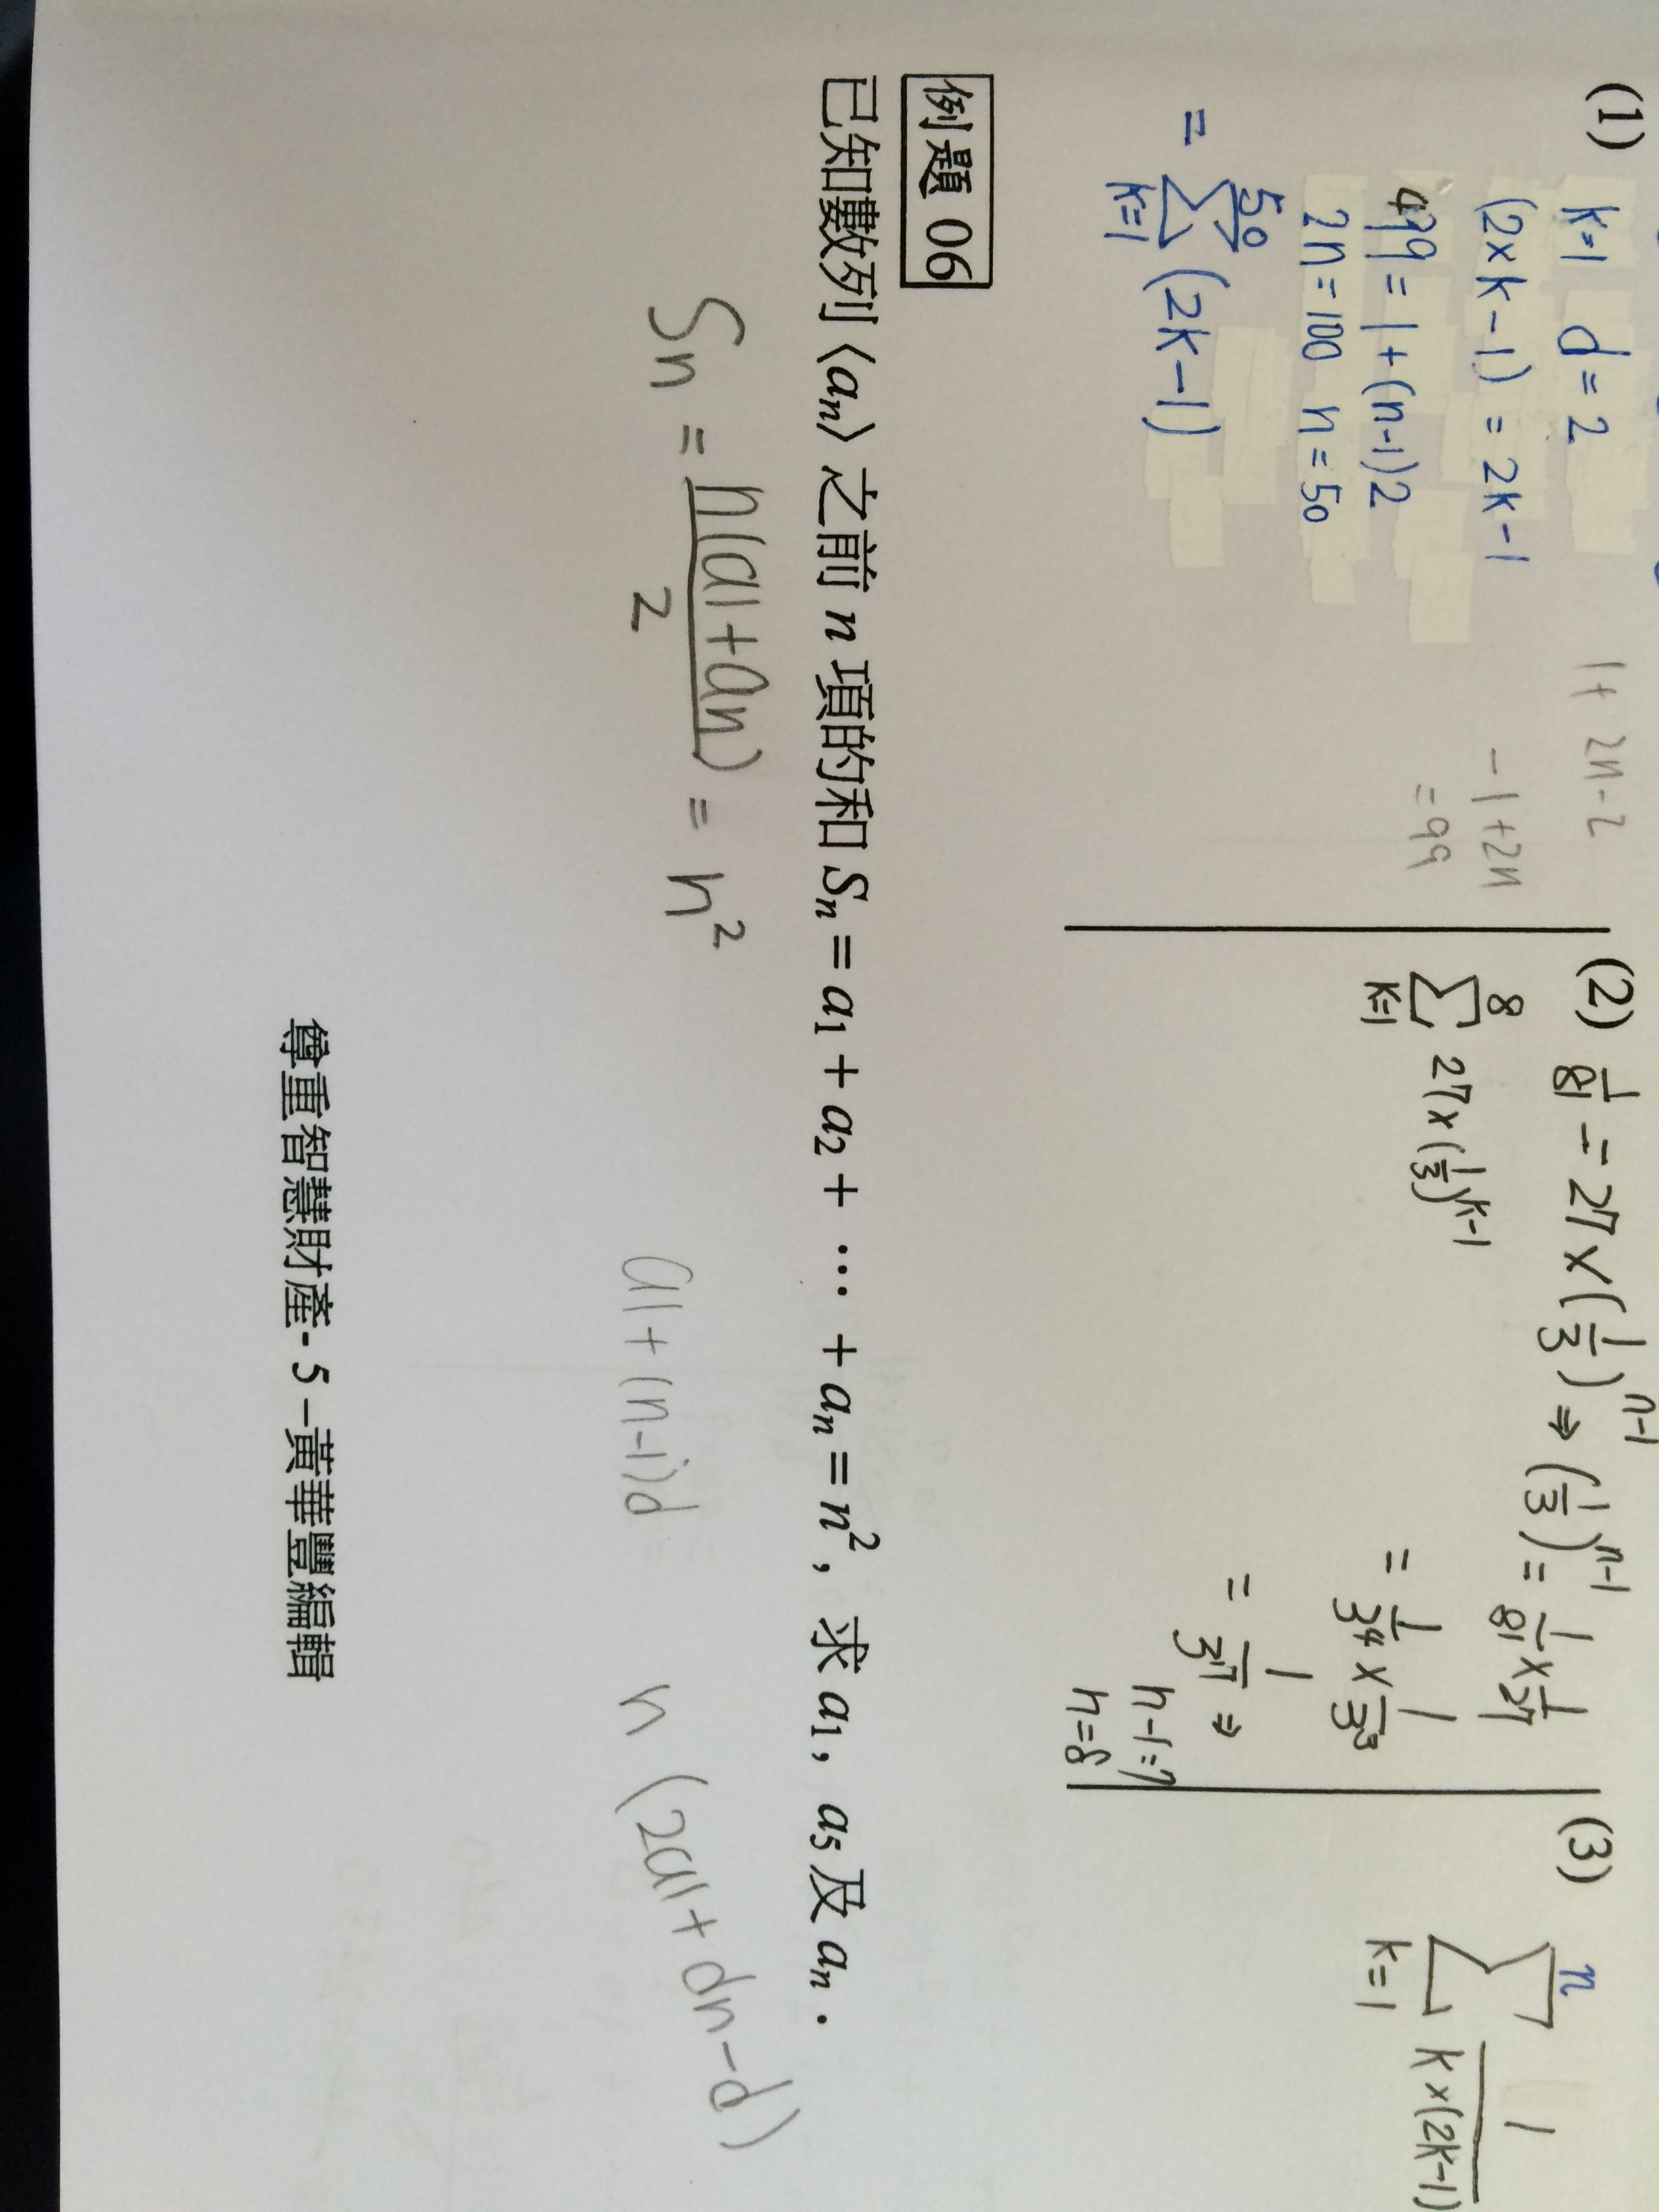 (1) k=1 d=2
(2×k-1)=2k-1
99=1+(n-1)2
2n=100 n=50
= 50 Σ k=1 (2k-1)
1+2n-2
-1+2n
=99
(2) 1/81 = 27×(1/3)^n-1 ⇒ (1/3)^n-1 = 1/81×1/27
= 1/3^4 × 1/3^3
= 1/3^7 ⇒
n-1=7
n=8
8 Σ k=1 27×(1/3)^k-1
(3) n Σ k=1 1/k×(2k-1)
例題 06
已知數列〈a_n〉之前 n 項的和 S_n = a_1 + a_2 + ⋯ + a_n = n^2, 求 a_1, a_5 及 a_n.
Sn = n(a1+an)/2 = n^2
a1+(n-1)d
n(2a1+dn-d)
尊重智慧財產- 5 –黃華豐編輯